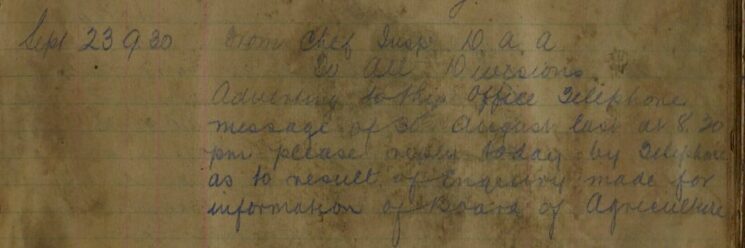 Sept 23 9.30 From Chef Insp. D. A. A
To All Divisions
Adverting to this Office Telephone
message of 30 August last at 8.30
pm please report today by Telephone
as to result of Enquiry made for
information of Board of Agriculture